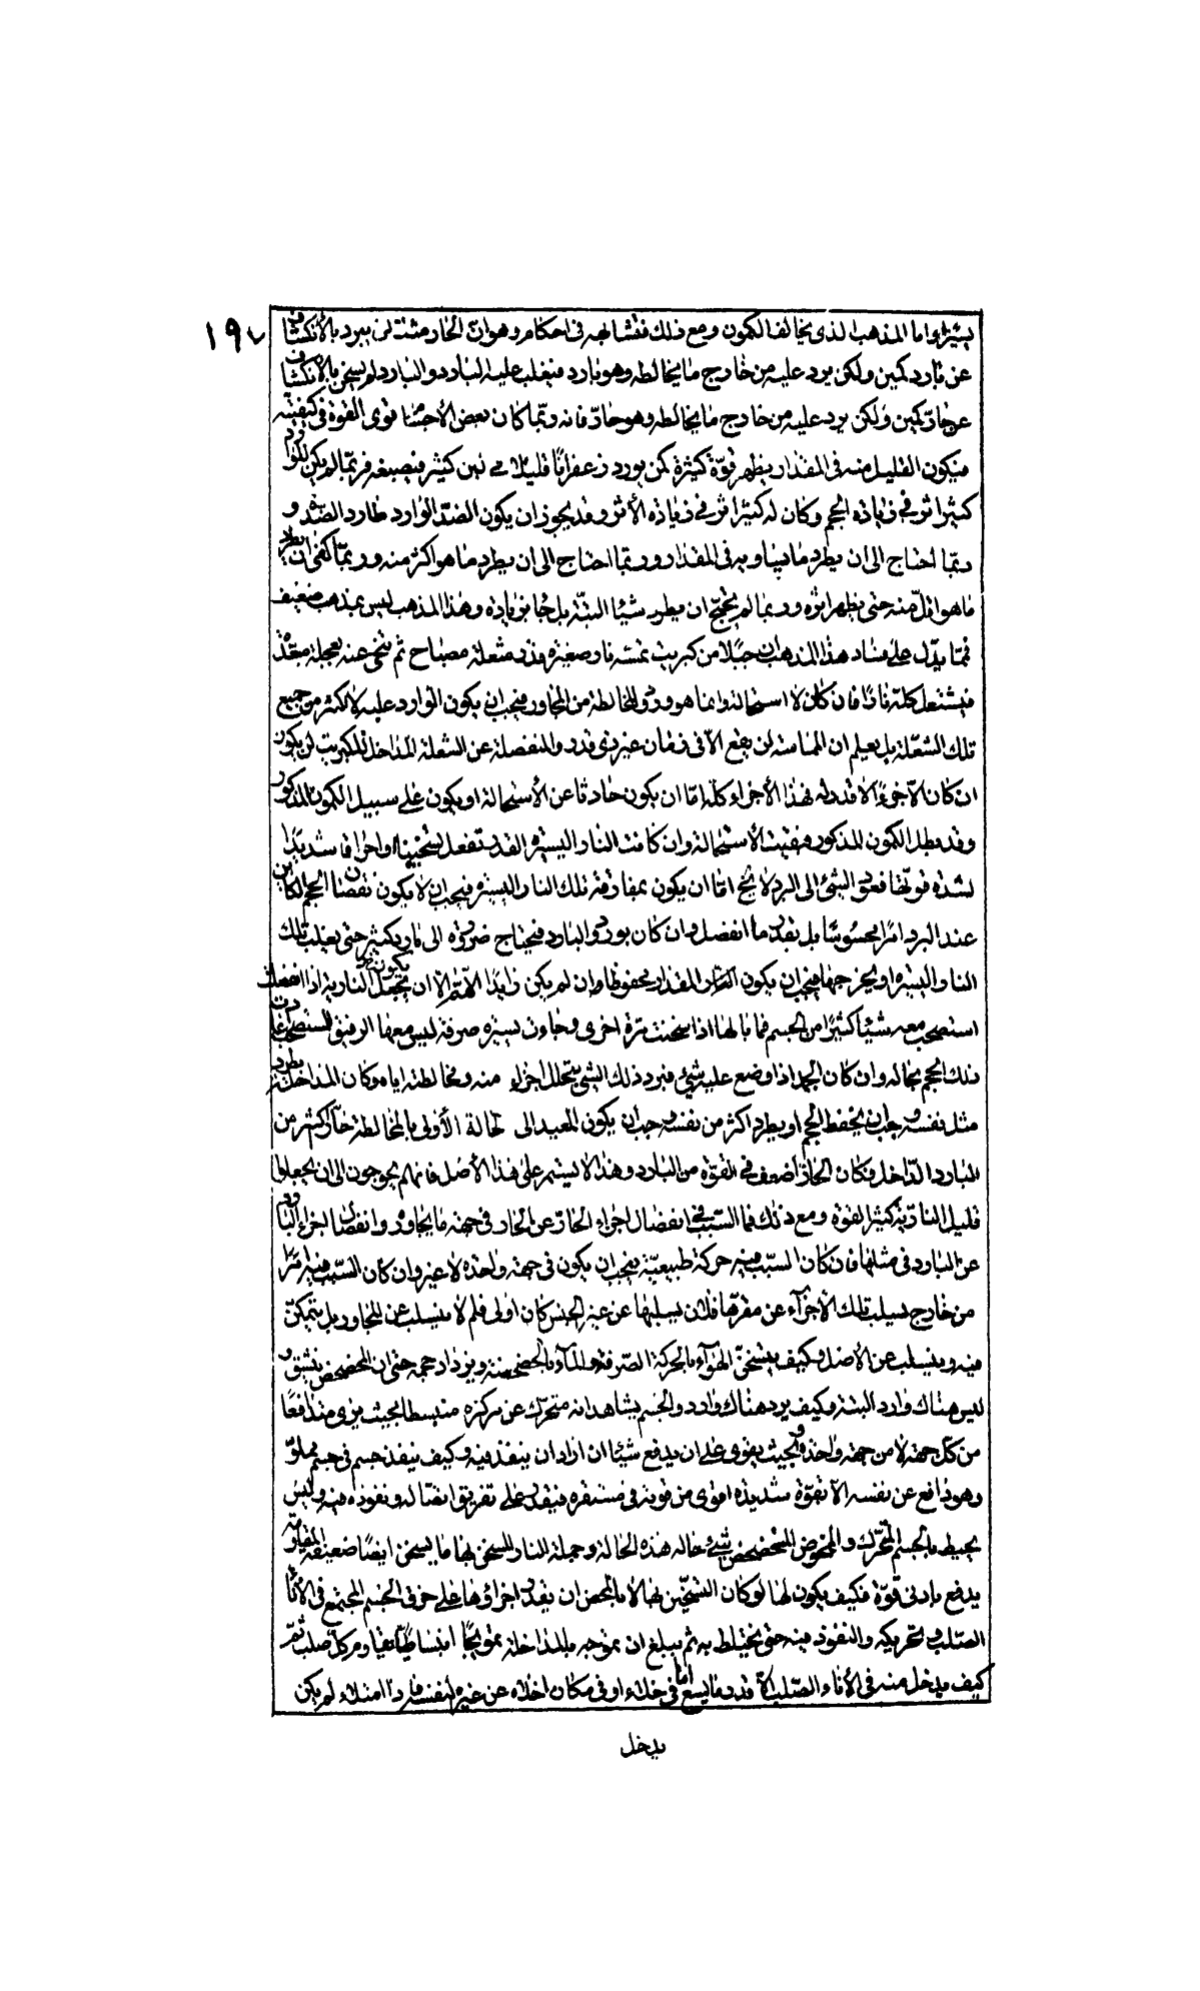 ١٩٧
يسيرا واما المذهب الذى يخالف الكمون ومع ذلك فتشابهه فى احكام وهو ان الحار مثلا لن يبرد بالأنكشاف
عن بارد كمين ولكن يرد عليه من خارج ما يخالطه وهو بارد فيغلب عليه البارد والبارد لم يسخن بالأنكشاف
عن حار كمين ولكن يرد عليه من خارج ما يخالطه وهو حار فانه ربما كان بعض الأجسام قوى القوة فى كيفيته
فيكون القليل منه فى المقدار يظهر قوة كثيرة كمن يورد زعفرانا قليلا فى لبن كثير فيصبغه فربما لم يكن للوارد
كثير اثر فى زيادة الحجم وكان له كثير اثر فى زيادة الأثر وقد يجوز ان يكون الضد الوارد طارد الضده و
ربما احتاج الى ان يطرد ما يساويه فى المقدار وربما احتاج الى ان يطرد ما هو اكثر منه وربما كفى ان يطرد
ما هو اقل منه حتى يظهر اثره وربما لم يحتج ان يطرد شيئا البتة بل جاء بزيادة وهذا المذهب ليس بمذهب ضعيف
فمما يدل على فساد هذا المذهب ان جبلا من كبريت تمسه نار صغيرة قدر شعلة مصباح ثم تنحى عنه بعجلة مبعدة
فيشتعل كله نارا فان كان لا استحالة وانما هو ورود المخالطة من المجاور فيجب ان يكون الوارد عليه لا اكثر من جميع
تلك الشعلة بل يعلم ان المماسة لن يقع الا فى زمان غير ذى قدر والمنفصلة عن الشعلة المداخل للكبريت لن يكون
ان كان الا جزءا لا قدر له فهذا الأجزاء كلها اما ان يكون حادثا عن الأستحالة او يكون على سبيل الكمون المذكور
وقد بطل الكمون المذكور فبقيت الأستحالة وان كانت النار اليسيرة القدر تفعل تسخينا واحراقا شديدا
لشدة قوتها فعود الشئ الى البرد لا يخ اما ان يكون بمفارقة تلك النار اليسيرة فيجب ان لا يكون نقصان الحجم الكاين
عند البرد امرا محسوسا بل بقدر ما انفصل وان كان بورود البارد فيحتاج ضرورة الى بارد كثير حتى يغلب تلك
النار اليسيرة او يخرجها فيجب ان يكون المقدار محفوظا وان لم يكن زايدا اللهم الا ان يكون تجعل النارية اذا انفصلت
استصحب معه شيئا كثيرا من الجسم فما بالها اذا سخنت مرة اخرى وجاءت يسيرة صرفة ليس معها الرفيق المستصحب عادت
ذلك الحجم بحاله وان كان الجمد اذا وضع عليه شئ فبرد ذلك الشئ بتحلل اجزاء منه ومخالطته اياه وكان المداخل يطرد
مثل نفسه وجب ان يحفظ الحجم او يطرد اكثر من نفسه وجب ان يكون المعيد الى الحالة الأولى بالمخالطة حارا اكثر من
البارد الداخل فكان الحار اضعف فى القوة من البارد وهذا لا يستمر على هذا الأصل فانهم يحوجون الى ان يجعلوا
قليل النار كثير القوة ومع ذلك فما السبب فى انفصال اجزاء الحار عن الحار فى جهة ما يجاوره وانفصال اجزاء البارد
عن البارد فى مثلها فان كان السبب فيه حركة طبيعية فيجب ان يكون فى جهة واحدة لا غير وان كان السبب فيه امرا
من خارج يسلب تلك الأجزاء عن مقرها فلان يسلبها عن غير الجنس كان اولى فلم لا ينسلب عن المجاور بل يتمكن
فيه وينسلب عن الأصل وكيف يتسخن الهواء بالحركة الصرفة والماء بالخضخضة ويزداد حجمه حتى ان المخضخض ينشق و
ليس هناك وارد البتة وكيف يرد هناك وارد والجسم يشاهد انه متحرك عن مركزه منبسطا بحيث يرى مدافعا
من كل جهة لا من جهة واحدة وبحيث يقوى على ان يدفع شيئا ان اراد ان ينفذ فيه وكيف ينفذ جسم فى جسم مملو
وهو دافع عن نفسه الا بقوة شديدة اقوى من قوته فى مستقره فيقدر على تفريق اتصاله ونفوذه فيه وليس
يحيط بالجسم المتحرك والمخوض المخضخض شئ حاله هذه الحالة وجملة النار المسخن بها ما يسخن ايضا ضعيفة المقاومة
يدفع بادنى قوة فكيف يكون لها لو كان التسخين بها لا بالمحض ان يقدر اجزاؤها على خرق الجسم المجتمع فى الأناء
الصلب وتحريكه والنفوذ فيه حتى يختلط به ثم يبلغ ان يموجه بالمداخلة تمويجا انبساطيا يقاوم كل صلب ثم
كيف يدخل منه فى الأناء الصلب الا قدر ما يسع اما فى خلاء او فى مكان اخلاه عن غيره لنفسه فاذا امتلاء لم يكن
يدخل